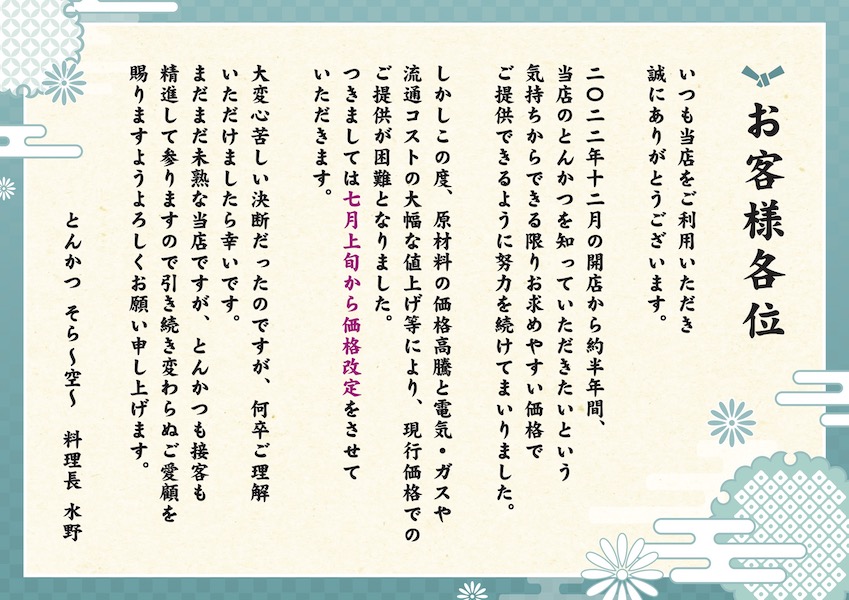 お客様各位
いつも当店をご利用いただき
誠にありがとうございます。
二〇二二年十二月の開店から約半年間、
当店のとんかつを知っていただきたいという
気持ちからできる限りお求めやすい価格で
ご提供できるように努力を続けてまいりました。
しかしこの度、原材料の価格高騰と電気・ガスや
流通コストの大幅な値上げ等により、現行価格での
ご提供が困難となりました。
つきましては七月上旬から価格改定をさせて
いただきます。
大変心苦しい決断だったのですが、何卒ご理解
いただけましたら幸いです。
まだまだ未熟な当店ですが、とんかつも接客も
精進して参りますので引き続き変わらぬご愛顧を
賜りますようよろしくお願い申し上げます。
とんかつ そら〜空〜 料理長 水野